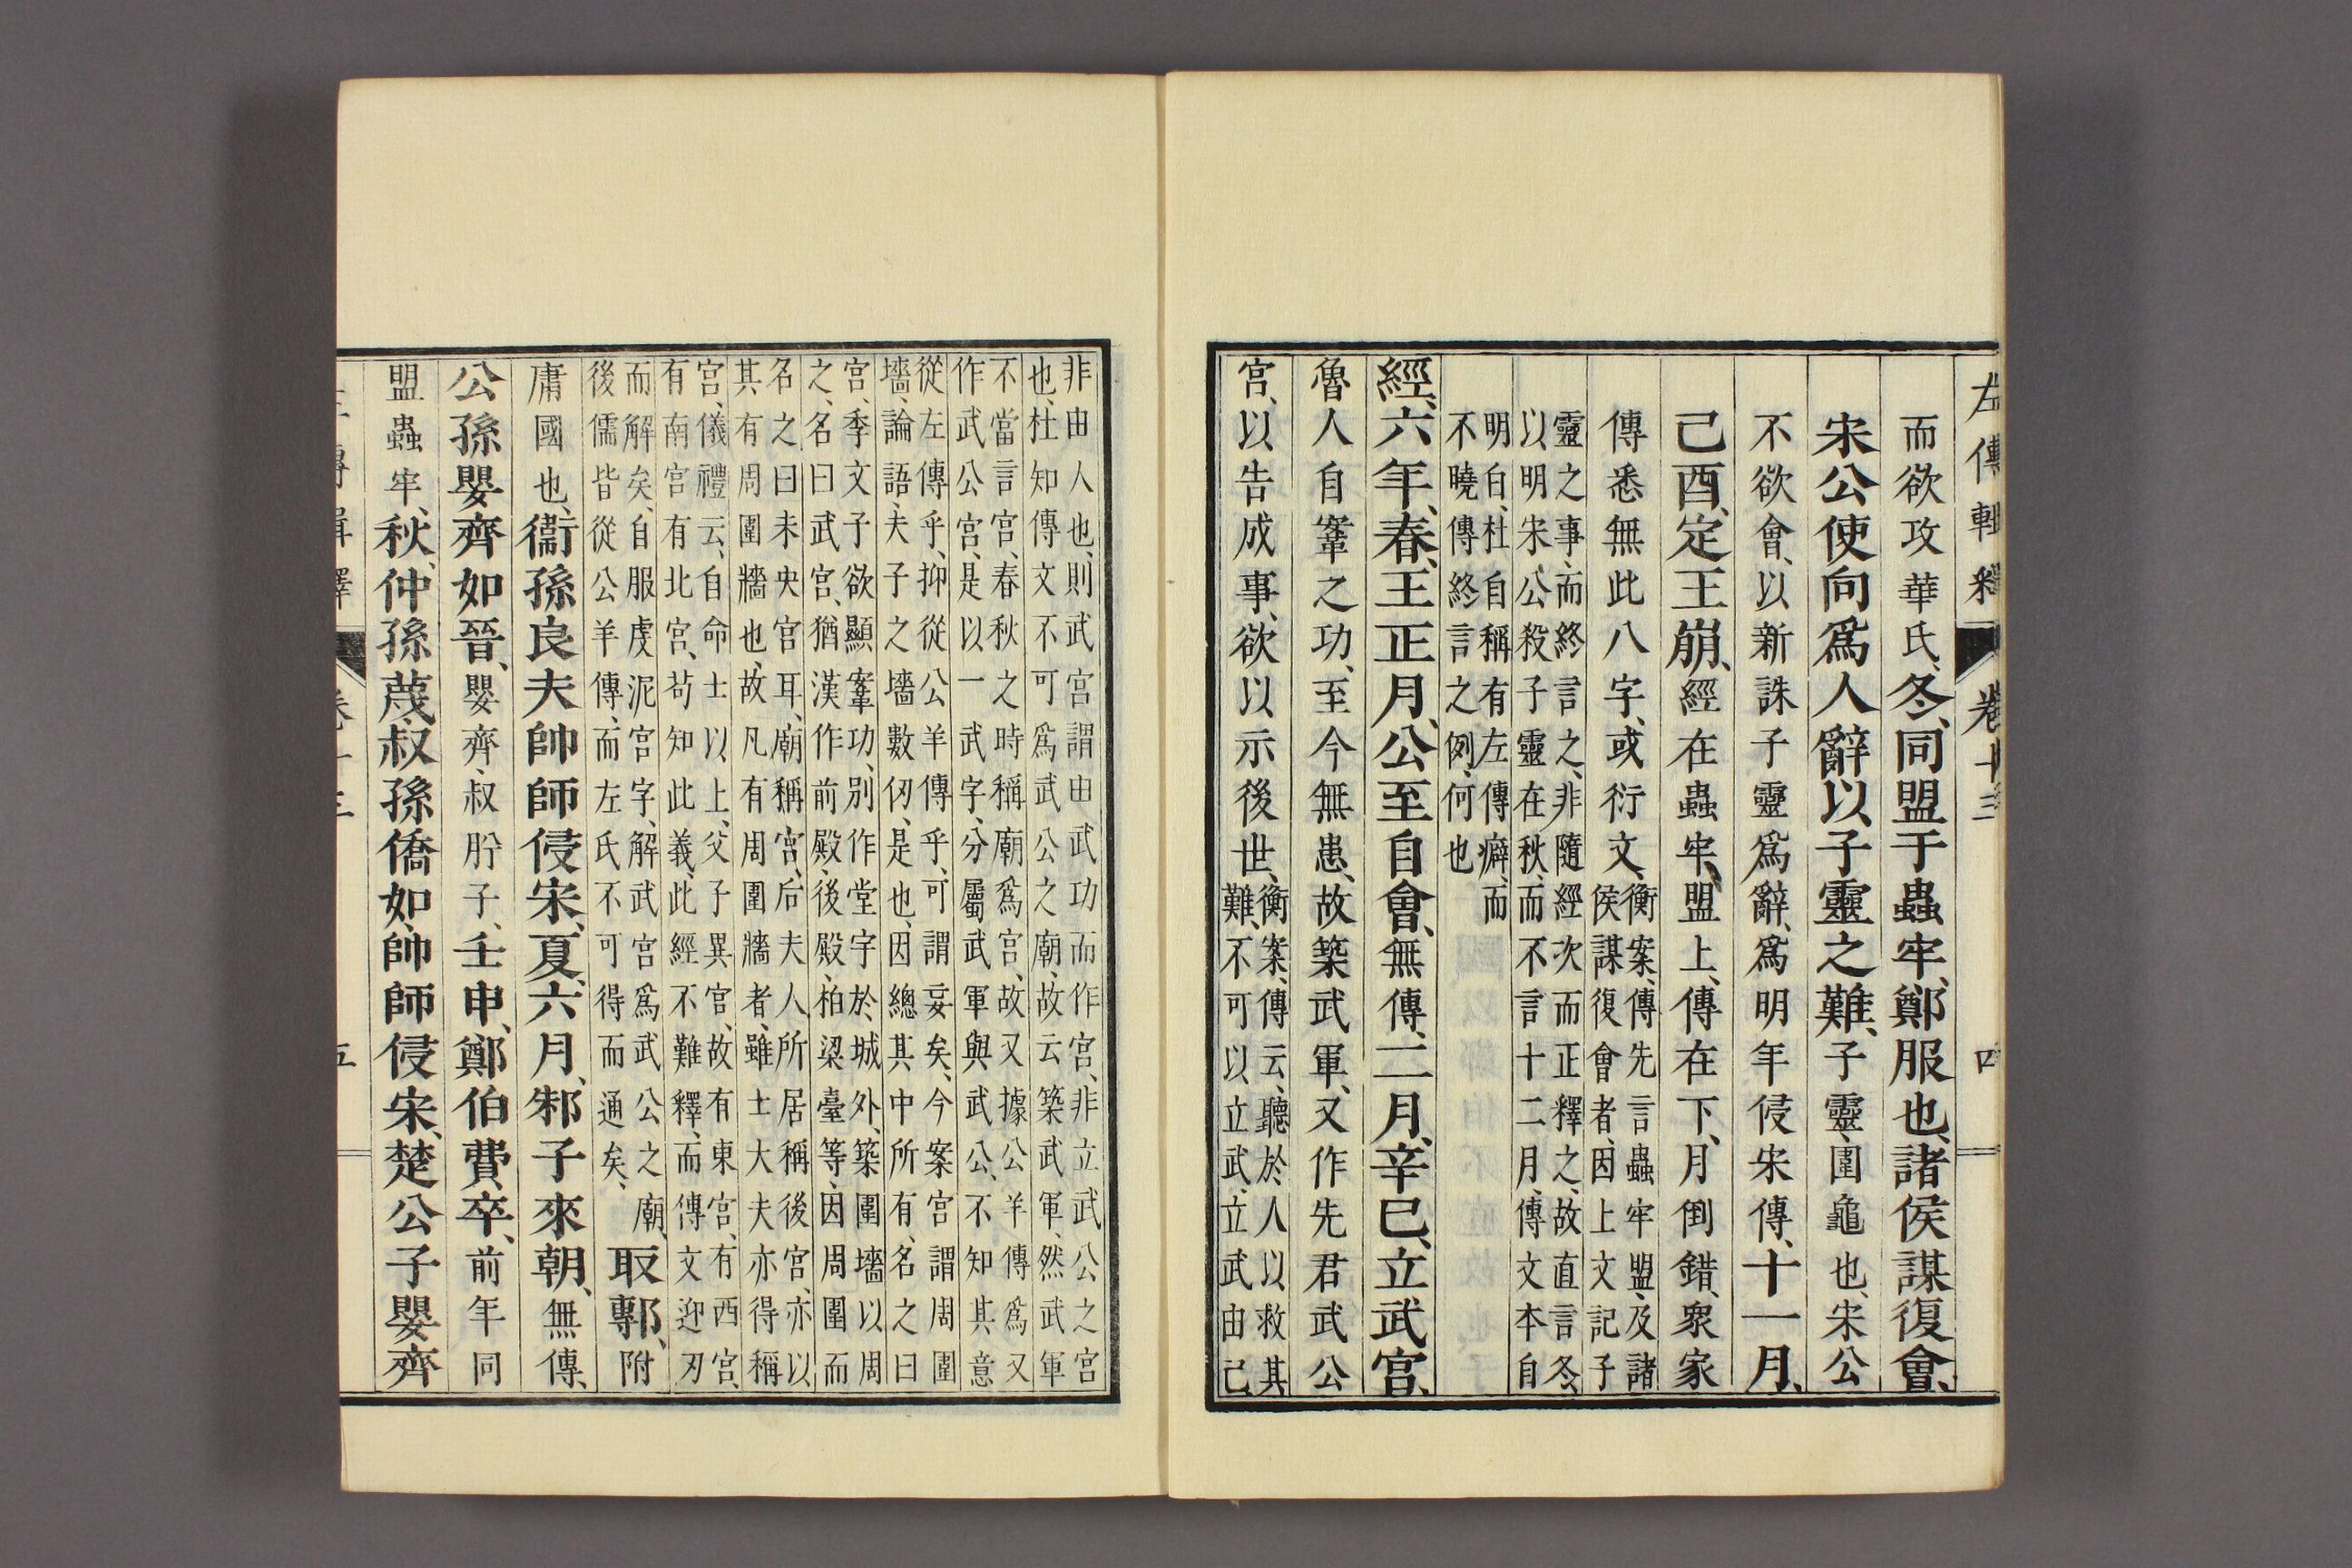 左傳輯釋 卷十三 四
而欲攻華氏、冬、同盟于蟲牢、鄭服也、諸侯謀復會、
宋公使向爲人辭以子靈之難、子靈、圍龜也、宋公
不欲會、以新誅子靈爲辭、爲明年侵宋傳、十一月、
己酉、定王崩、經在蟲牢、盟上、傳在下、月倒錯、衆家
傳悉無此八字、或衍文、
衡案、傳先言蟲牢盟、及諸
侯謀復會者、因上文記子
靈之事、而終言之、非隨經次而正釋之、故直言冬、
以明宋公殺子靈在秋、而不言十二月、傳文本自
明白、杜自稱有左傳癖、而
不曉傳終言之例、何也
經、六年、春、王正月、公至自會、無傳、二月、辛巳、立武宮、
魯人自鞌之功、至今無患、故築武軍、又作先君武公
宮、以告成事、欲以示後世、
衡案、傳云、聽於人以救其
難、不可以立武、立武由己
非由人也、則武宮謂由武功而作宮、非立武公之宮
也、杜知傳文不可爲武公之廟、故云築武軍、然武軍
不當言宮、春秋之時稱廟爲宮、故又據公羊傳爲又
作武公宮、是以一武字、分屬武軍與武公、不知其意
從左傳乎、抑從公羊傳乎、可謂妄矣、今案宮謂周圍
墻、論語、夫子之墻數仞、是也、因總其中所有、名之曰
宮、季文子欲顯鞌功、別作堂宇於城外、築圍墻以周
之、名曰武宮、猶漢作前殿、後殿、柏梁臺等、因周圍而
名之曰未央宮耳、廟稱宮、后夫人所居稱後宮、亦以
其有周圍牆也、故凡有周圍牆者、雖士大夫亦得稱
宮、儀禮云、自命士以上、父子異宮、故有東宮、有西宮、
有南宮、有北宮、苟知此義、此經不難釋、而傳文迎刃
而解矣、自服虔泥宮字、解武宮爲武公之廟、
後儒皆從公羊傳、而左氏不可得而通矣、
取鄟、附
庸國也、衞孫良夫帥師侵宋、夏、六月、邾子來朝、無傳、
公孫嬰齊如晉、嬰齊、叔肸子、壬申、鄭伯費卒、前年同
盟蟲牢、秋、仲孫蔑、叔孫僑如、帥師侵宋、楚公子嬰齊